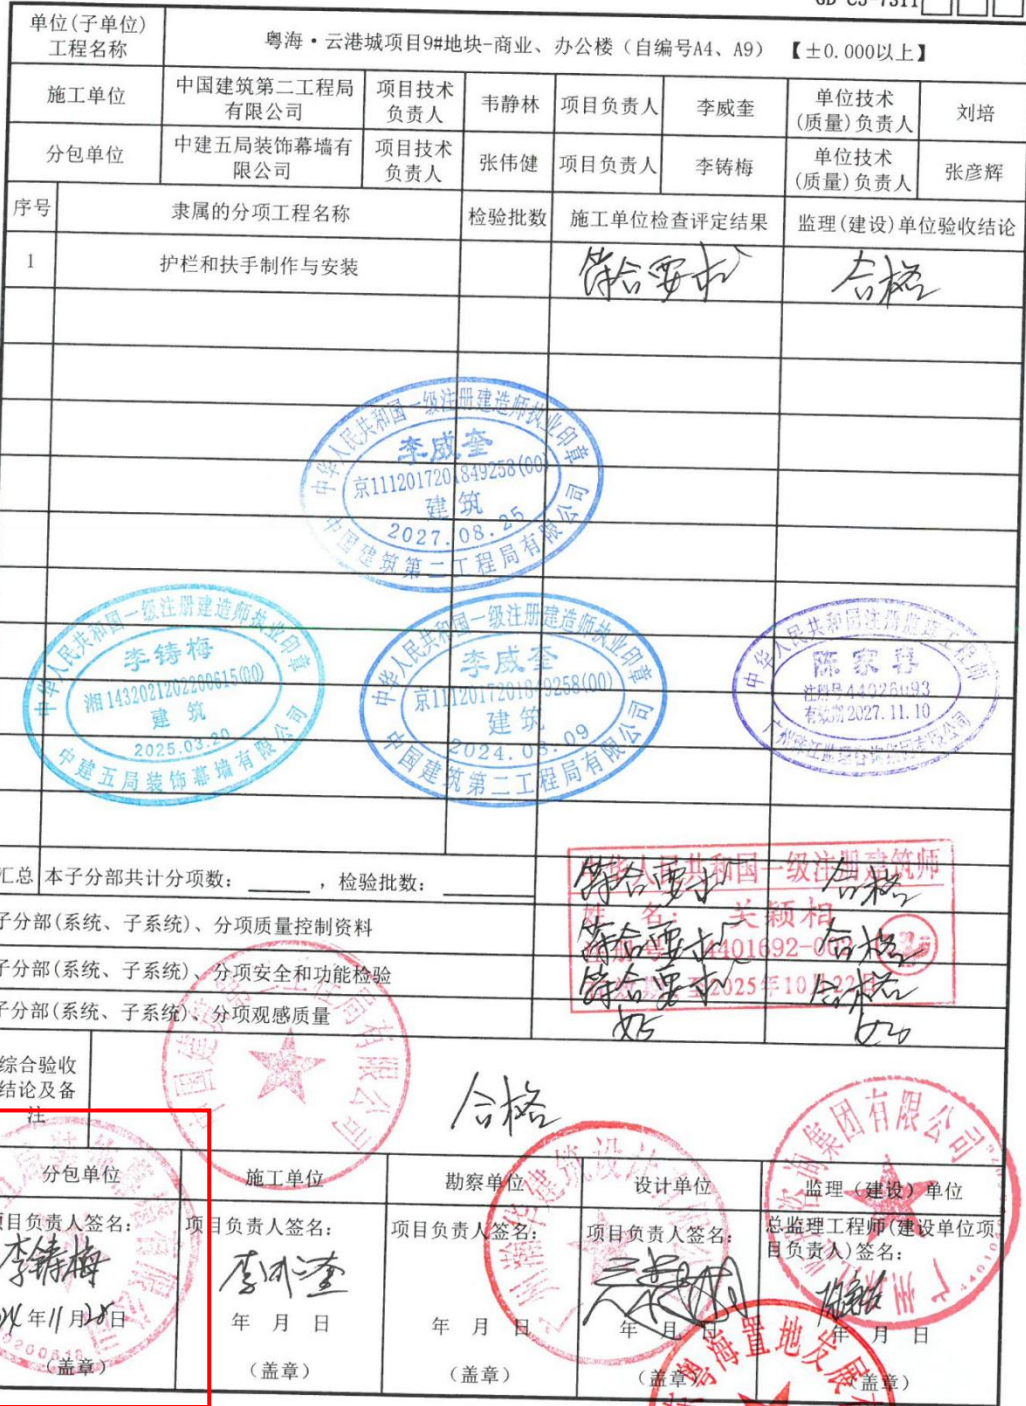 GD-C5-7311
单位(子单位)
工程名称
粤海·云港城项目9#地块-商业、办公楼（自编号A4、A9）【±0.000以上】
施工单位
中国建筑第二工程局
有限公司
项目技术
负责人
韦静林
项目负责人
李威奎
单位技术
(质量)负责人
刘培
分包单位
中建五局装饰幕墙有
限公司
项目技术
负责人
张伟健
项目负责人
李铸梅
单位技术
(质量)负责人
张彦辉
序号
隶属的分项工程名称
检验批数
施工单位检查评定结果
监理(建设)单位验收结论
1
护栏和扶手制作与安装
符合要求
合格
中华人民共和国一级注册建造师执业印章
李威奎
京1112017201849258(00)
建筑
2027.08.25
中国建筑第二工程局有限公司
中华人民共和国一级注册建造师执业印章
李铸梅
湘1432021202200615(00)
建筑
2025.03.20
中建五局装饰幕墙有限公司
中华人民共和国一级注册建造师执业印章
李威奎
京1112017201849258(00)
建筑
2024.03.09
中国建筑第二工程局有限公司
中华人民共和国注册监理工程师
注册号44026093
有效期2027.11.10
汇总
本子分部共计分项数：　　，检验批数：
符合要求
合格
中华人民共和国一级注册建筑师
姓 名：关颖相
4401692-00
至2025年10月22日
子分部(系统、子系统)、分项质量控制资料
符合要求
合格
子分部(系统、子系统)、分项安全和功能检验
符合要求
合格
子分部(系统、子系统)、分项观感质量
好
好
综合验收
结论及备
注
合格
中国建筑第二工程局有限公司
咨询集团有限公司
广州
建筑设计
分包单位
施工单位
勘察单位
设计单位
监理（建设）单位
项目负责人签名：
李铸梅
年11月28日
（盖章）
项目负责人签名：
李威奎
年 月 日
（盖章）
项目负责人签名：
年 月 日
（盖章）
项目负责人签名：
年 月 日
（盖章）
总监理工程师(建设单位项
目负责人)签名：
年 月 日
（盖章）
粤海置地发展